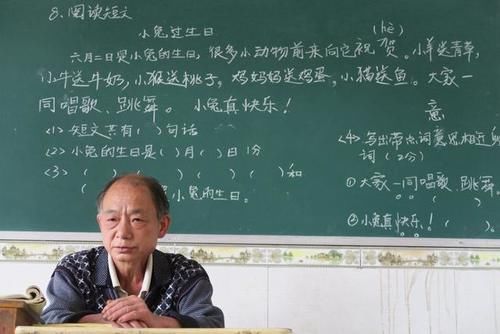 8. 阅读短文
小兔过生日
(hè)
六月二日是小兔的生日,很多小动物前来向它祝贺。小羊送青草,
小牛送牛奶,小猴送桃子,鸡妈妈送鸡蛋,小猫送鱼。大家一
同唱歌、跳舞。小兔真快乐!
<1> 短文共有( )句话
<2> 小兔的生日是( )月( )日 1分
<3> ( ) ( ) ( ) ( )和
小兔的生日。
意
<4> 写出带点词意思相近的
词 (2分)
① 大家一同唱歌、跳舞。
( )
② 小兔真快乐!( )